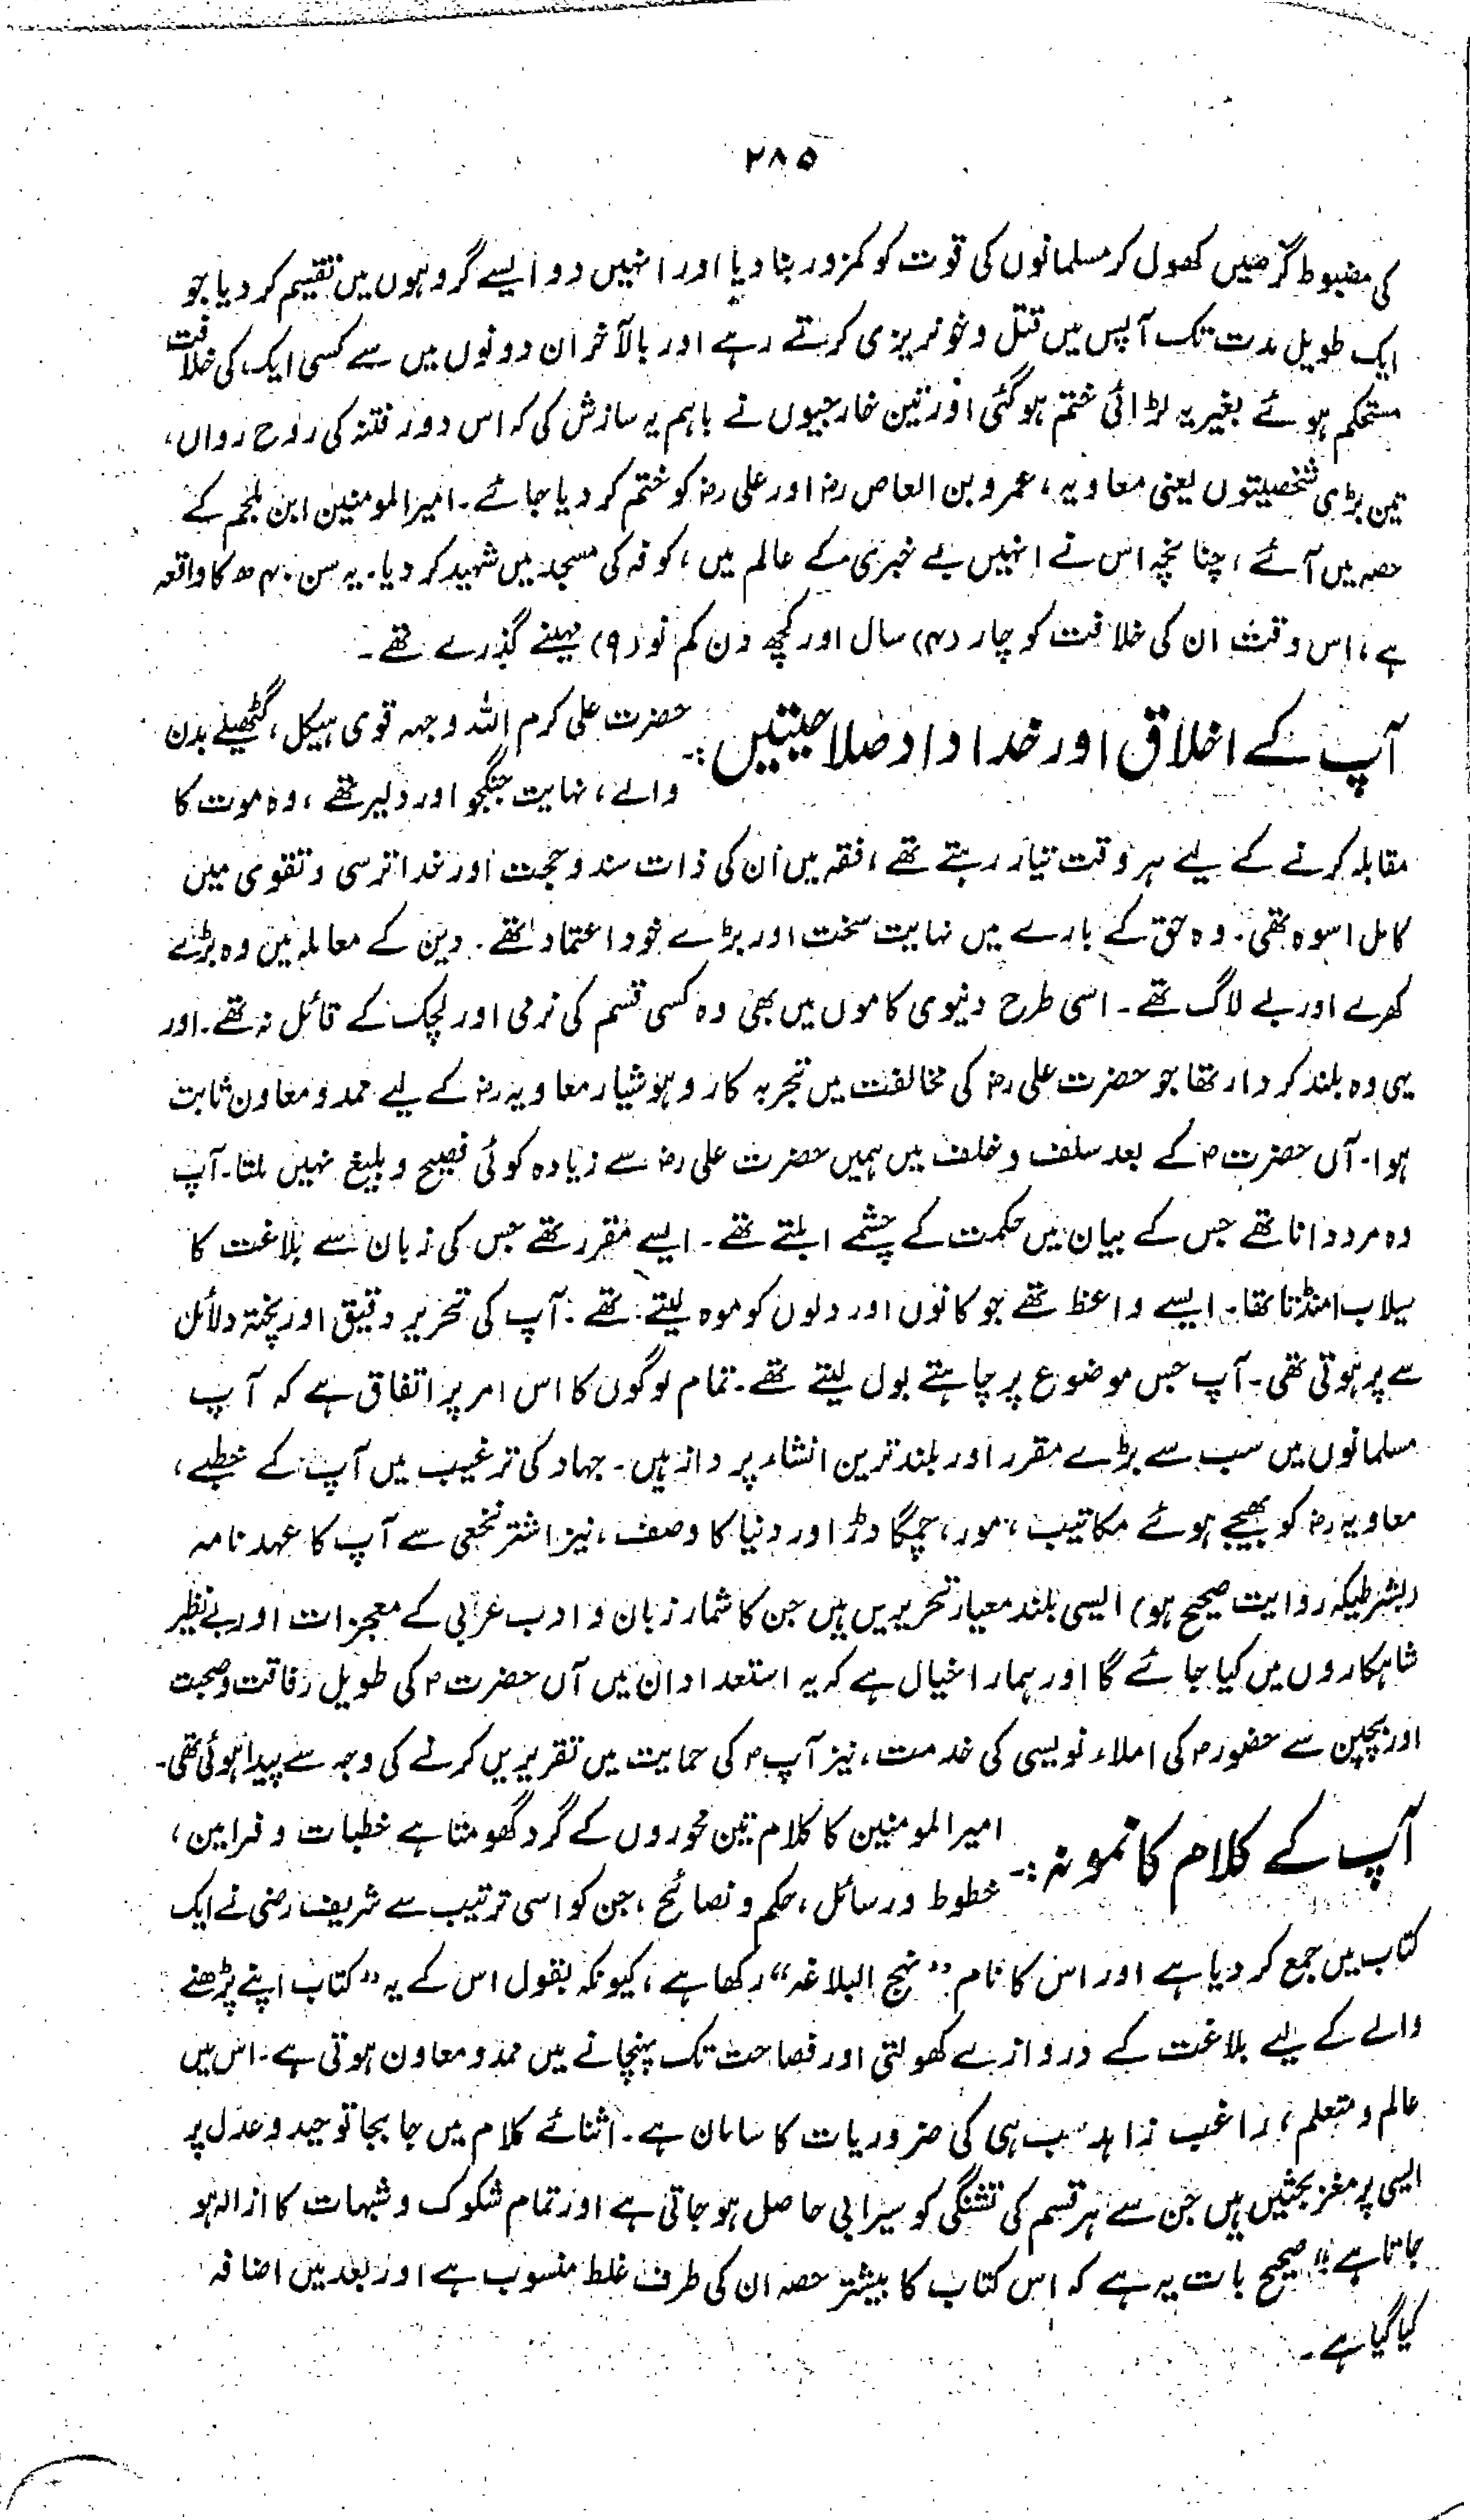 ۲۸۵
کی مضبوط گرھیں کھول کر مسلمانوں کی قوت کو کمزور بنا دیا اور انہیں دو ایسے گروہوں میں تقسیم کر دیا جو
ایک طویل مدت تک آپس میں قتل و خونریزی کرتے رہے اور بالآخر ان دونوں میں سے کسی ایک کی خلافت
مستحکم ہوئے بغیر یہ لڑائی ختم ہو گئی اور تین خارجیوں نے باہم یہ سازش کی کہ اس دور فتنہ کی روح رواں،
تین بڑی شخصیتوں یعنی معاویہ، عمرو بن العاص رضؓ اور علی رضؓ کو ختم کر دیا جائے۔ امیر المومنین ابن ملجم کے
حصہ میں آئے، چنانچہ اس نے انہیں بے خبری کے عالم میں، کوفہ کی مسجد میں شہید کر دیا۔ یہ سن ۴۰ ھ کا واقعہ
ہے، اس وقت ان کی خلافت کو چار (۴) سال اور کچھ دن کم نو (۹) مہینے گذرے تھے۔
آپ کے اخلاق اور خداداد صلاحیتیں:۔ حضرت علی کرم اللہ وجہہ قوی ہیکل، گٹھیلے بدن
والے، نہایت جنگجو اور دلیر تھے، وہ موت کا
مقابلہ کرنے کے لیے ہر وقت تیار رہتے تھے، فقہ میں ان کی ذات سند و حجت اور خدا ترسی و تقوی میں
کامل اسوہ تھی۔ وہ حق کے بارے میں نہایت سخت اور بڑے خود اعتماد تھے۔ دین کے معاملہ میں وہ بڑے
کھرے اور بے لاگ تھے۔ اسی طرح دنیوی کاموں میں بھی وہ کسی قسم کی نرمی اور لچک کے قائل نہ تھے۔ اور
یہی وہ بلند کردار تھا جو حضرت علی رضؓ کی مخالفت میں تجربہ کار و ہوشیار معاویہ رضؓ کے لیے ممد و معاون ثابت
ہوا۔ آں حضرت ؐ کے بعد سلف و خلف میں ہمیں حضرت علی رضؓ سے زیادہ کوئی فصیح و بلیغ نہیں ملتا۔ آپ
وہ مرد دانا تھے جس کے بیان میں حکمت کے چشمے ابلتے تھے۔ ایسے مقرر تھے جس کی زبان سے بلاغت کا
سیلاب امنڈتا تھا۔ ایسے واعظ تھے جو کانوں اور دلوں کو موہ لیتے تھے۔ آپ کی تحریر دقیق اور پختہ دلائل
سے پر ہوتی تھی۔ آپ جس موضوع پر چاہتے بول لیتے تھے۔ تمام لوگوں کا اس امر پر اتفاق ہے کہ آپ
مسلمانوں میں سب سے بڑے مقرر اور بلند ترین انشاء پرداز ہیں۔ جہاد کی ترغیب میں آپ کے خطبے،
معاویہ رضؓ کو بھیجے ہوئے مکاتیب، مور، چمگادڑ اور دنیا کا وصف، نیز اشتر نخعی سے آپ کا عہد نامہ
(بشرطیکہ روایت صحیح ہو) ایسی بلند معیار تحریریں ہیں جن کا شمار زبان و ادب عربی کے معجزات اور بے نظیر
شاہکاروں میں کیا جائے گا اور ہمارا خیال ہے کہ یہ استعداد ان میں آں حضرت ؐ کی طویل رفاقت و صحبت
اور بچپن سے حضور ؐ کی املاء نویسی کی خدمت، نیز آپ ؐ کی حمایت میں تقریریں کرنے کی وجہ سے پیدا ہوئی تھی۔
آپ کے کلام کا نمونہ:۔ امیر المومنین کا کلام تین محوروں کے گرد گھومتا ہے خطبات و فرامین،
خطوط و رسائل، حکم و نصائح، جن کو اسی ترتیب سے شریف رضی نے ایک
کتاب میں جمع کر دیا ہے اور اس کا نام "نہج البلاغہ" رکھا ہے، کیونکہ بقول اس کے یہ "کتاب اپنے پڑھنے
والے کے لیے بلاغت کے دروازے کھولتی اور فصاحت تک پہنچانے میں ممد و معاون ہوتی ہے۔ اس میں
عالم و متعلم، راغب زاہد سب ہی کی ضروریات کا سامان ہے۔ اثنائے کلام میں جا بجا توحید و عدل پر
ایسی پر مغز بحثیں ہیں جن سے ہر قسم کی تشنگی کو سیرابی حاصل ہو جاتی ہے اور تمام شکوک و شبہات کا ازالہ ہو
جاتا ہے" صحیح بات یہ ہے کہ اس کتاب کا بیشتر حصہ ان کی طرف غلط منسوب ہے اور بعد میں اضافہ
کیا گیا ہے۔